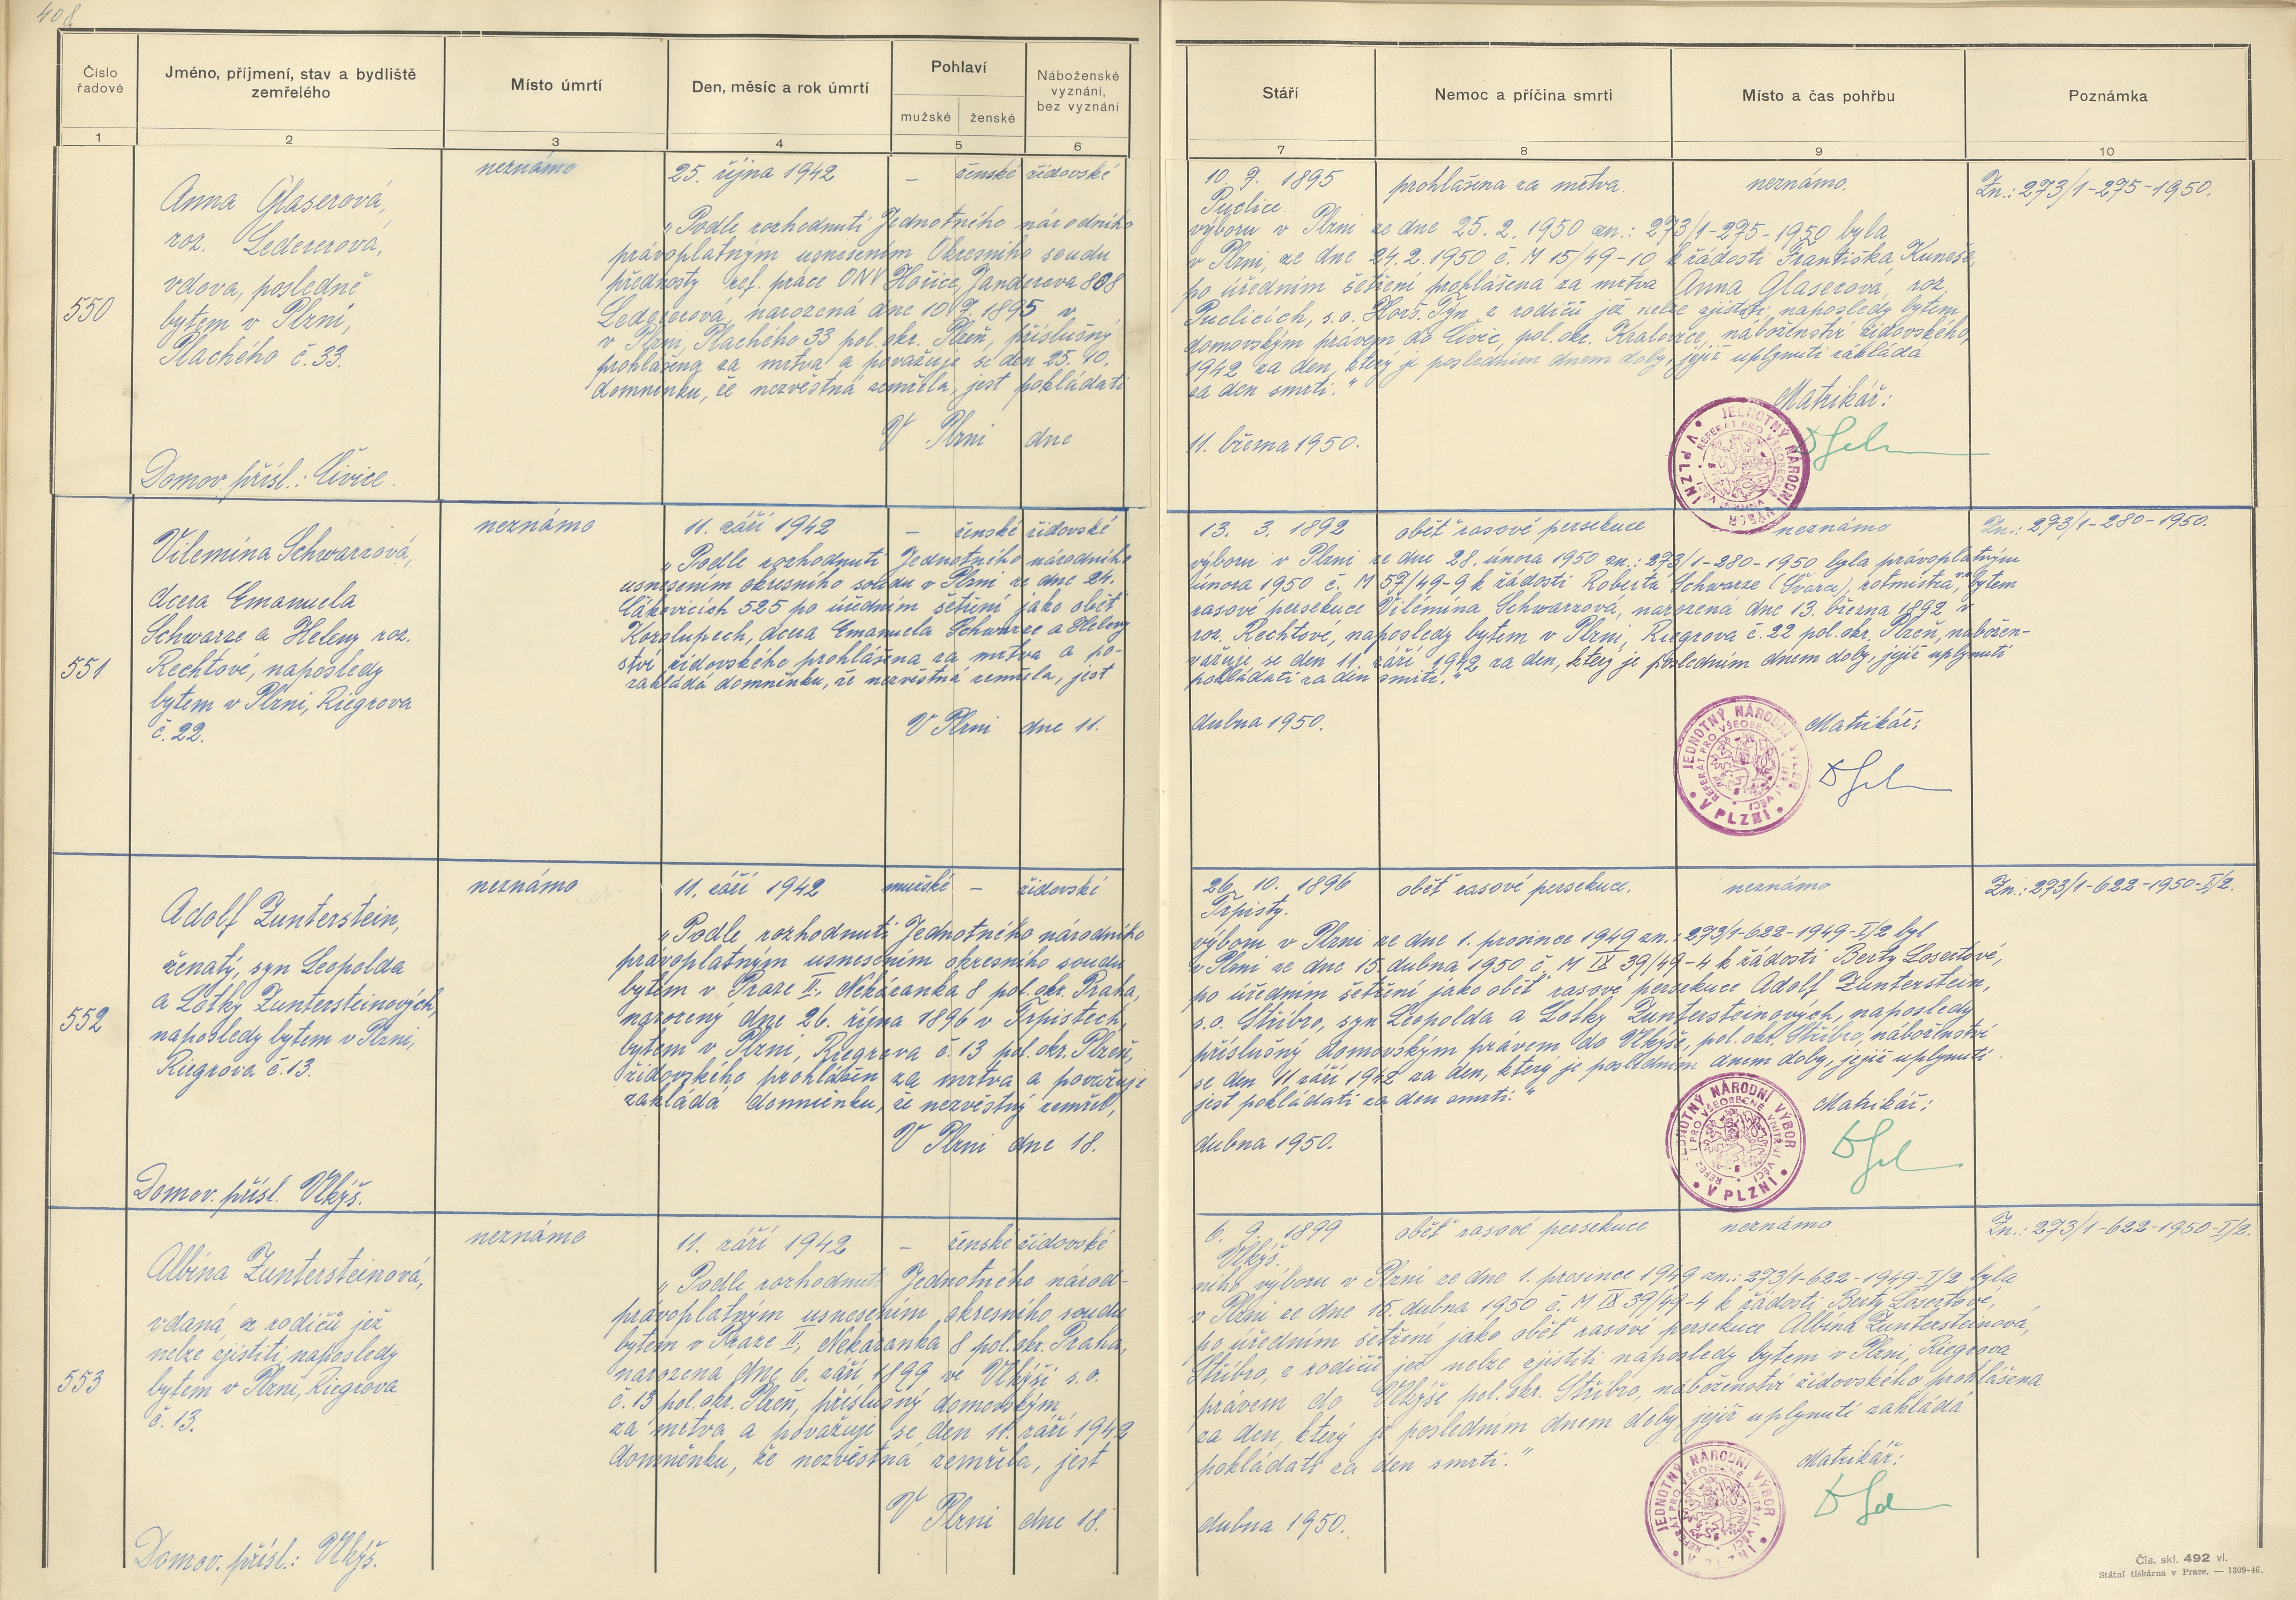 408
Číslo řadové
Jméno, příjmení, stav a bydliště zemřelého
Místo úmrtí
Den, měsíc a rok úmrtí
Pohlaví
mužské
ženské
Náboženské vyznání, bez vyznání
Stáří
Nemoc a příčina smrti
Místo a čas pohřbu
Poznámka
1 2 3 4 5 6 7 8 9 10
550
Anna Glaserová,
roz. Ledererová,
vdova, posledně
bytem v Plzni,
Plachého č. 33.
Domov. přísl.: Čivice.
neznámo
25. října 1942
– ženské židovské
10. 9. 1895
Puclice.
prohlášena za mrtva.
neznámo.
Zn.: 273/1-275-1950.
„Podle rozhodnutí Jednotného národního výboru v Plzni ze dne 25. 2. 1950 zn.: 273/1-275-1950 byla
právoplatným usnesením Okresního soudu v Plzni, ze dne 24. 2. 1950 č. M 15/49-10 k žádosti Františka Kuneše,
přednosty ref. práce ONV Hořice, Janderova 808 po úředním šetření prohlášena za mrtva Anna Glaserová, roz.
Ledererová, narozená dne 10. 9. 1895 v Puclicích, s.o. Horš. Týn z rodičů jež nelze zjistiti, naposledy bytem
v Plzni, Plachého 33 pol. okr. Plzeň, příslušný domovským právem do Čivic, pol. okr. Kralovice, náboženství židovského,
prohlášena za mrtva a považuje se den 25. 10. 1942 za den, který je posledním dnem doby, jejíž uplynutí zákládá
domněnku, že nezvěstná zemřela, jest pokládati za den smrti.“
V Plzni dne 11. března 1950.
Matrikář:
JEDNOTNÝ NÁRODNÍ VÝBOR V PLZNI
REFERÁT PRO VŠEOBECNÉ VNITŘNÍ VĚCI
551
Vilemína Schwarzová,
dcera Emanuela
Schwarze a Heleny roz.
Rechtové, naposledy
bytem v Plzni, Riegrova
č. 22.
neznámo
11. září 1942
– ženské židovské
13. 3. 1892
oběť rasové persekuce
neznámo
Zn.: 273/1-280-1950.
„Podle rozhodnutí Jednotného národního výboru v Plzni ze dne 28. února 1950 zn.: 273/1-280-1950 byla právoplatným
usnesením okresního soudu v Plzni ze dne 24. února 1950 č. M 57/49-9 k žádosti Roberta Schwarze (Švarce), rotmistra, bytem
Čákovicích 525 po úředním šetření jako oběť rasové persekuce Vilémína Schwarzová, narozena dne 13. března 1892 v
Kozolupech, dcera Emanuela Schwarze a Heleny roz. Rechtové, naposledy bytem v Plzni, Riegrova č. 22 pol. okr. Plzeň, nábožen-
ství židovského prohlášena za mrtva a po- važuje se den 11. září 1942 za den, který je posledním dnem doby, jejíž uplynutí
zakládá domněnku, že nezvěstná zemřela, jest pokládati za den smrti.“
V Plzni dne 11. dubna 1950.
Matrikář:
JEDNOTNÝ NÁRODNÍ VÝBOR V PLZNI
REFERÁT PRO VŠEOBECNÉ VNITŘNÍ VĚCI
552
Adolf Zunterstein,
ženatý, syn Leopolda
a Lotky Zuntersteinových,
naposledy bytem v Plzni,
Riegrova č. 13.
Domov. přísl. Vlkýš.
neznámo
11. září 1942
mužské – židovské
26. 10. 1896
Trpisty.
oběť rasové persekuce.
neznámo
Zn.: 273/1-622-1950-I/2.
„Podle rozhodnutí Jednotného národního výboru v Plzni ze dne 1. prosince 1949 zn.: 273/1-622-1949-I/2 byl
právoplatným usnesením okresního soudu v Plzni ze dne 15. dubna 1950 č. M IX 39/49-4 k žádosti Berty Losertové,
bytem v Praze II., Nekázanka 8 pol. okr. Praha, po úředním šetření jako oběť rasové persekuce Adolf Zunterstein,
narozený dne 26. října 1896 v Trpistech, s.o. Stříbro, syn Leopolda a Lotky Zuntersteinových, naposledy
bytem v Plzni, Riegrova č. 13 pol. okr. Plzeň, příslušný domovským právem do Vlkýše, pol. okr. Stříbro, náboženství
židovského prohlášen za mrtva a považuje se den 11. září 1942 za den, který je posledním dnem doby, jejíž uplynutí
zakládá domněnku, že nezvěstný zemřel, jest pokládati za den smrti.“
V Plzni dne 18. dubna 1950.
Matrikář:
JEDNOTNÝ NÁRODNÍ VÝBOR V PLZNI
REFERÁT PRO VŠEOBECNÉ VNITŘNÍ VĚCI
553
Albína Zuntersteinová,
vdaná, z rodičů jež
nelze zjistiti, naposledy
bytem v Plzni, Riegrova
č. 13.
Domov. přísl.: Vlkýš.
neznámo
11. září 1942
– ženské židovské
6. 9. 1899
Vlkýš.
oběť rasové persekuce
neznámo
Zn.: 273/1-622-1950-I/2.
„Podle rozhodnutí Jednotného národ- ního výboru v Plzni ze dne 1. prosince 1949 zn.: 273/1-622-1949-I/2 byla
právoplatným usnesením okresního soudu v Plzni ze dne 15. dubna 1950 č. M IX 39/49-4 k žádosti Berty Losertové,
bytem v Praze II, Nekázanka 8 pol. okr. Praha, po úředním šetření jako oběť rasové persekuce Albína Zuntersteinová,
narozená dne 6. září 1899 ve Vlkýši s.o. Stříbro, z rodičů jež nelze zjistiti naposledy bytem v Plzni, Riegrova
č. 13 pol. okr. Plzeň, příslušný domovským právem do Vlkýše pol. okr. Stříbro, náboženství židovského prohlášena
za mrtva a považuje se den 11. září 1942 za den, který je posledním dnem doby, jejíž uplynutí zakládá
domněnku, že nezvěstná zemřela, jest pokládati za den smrti.“
V Plzni dne 18. dubna 1950.
Matrikář:
JEDNOTNÝ NÁRODNÍ VÝBOR V PLZNI
REFERÁT PRO VŠEOBECNÉ VNITŘNÍ VĚCI
Čís. skl. 492 vl.
Státní tiskárna v Praze. — 1309-46.